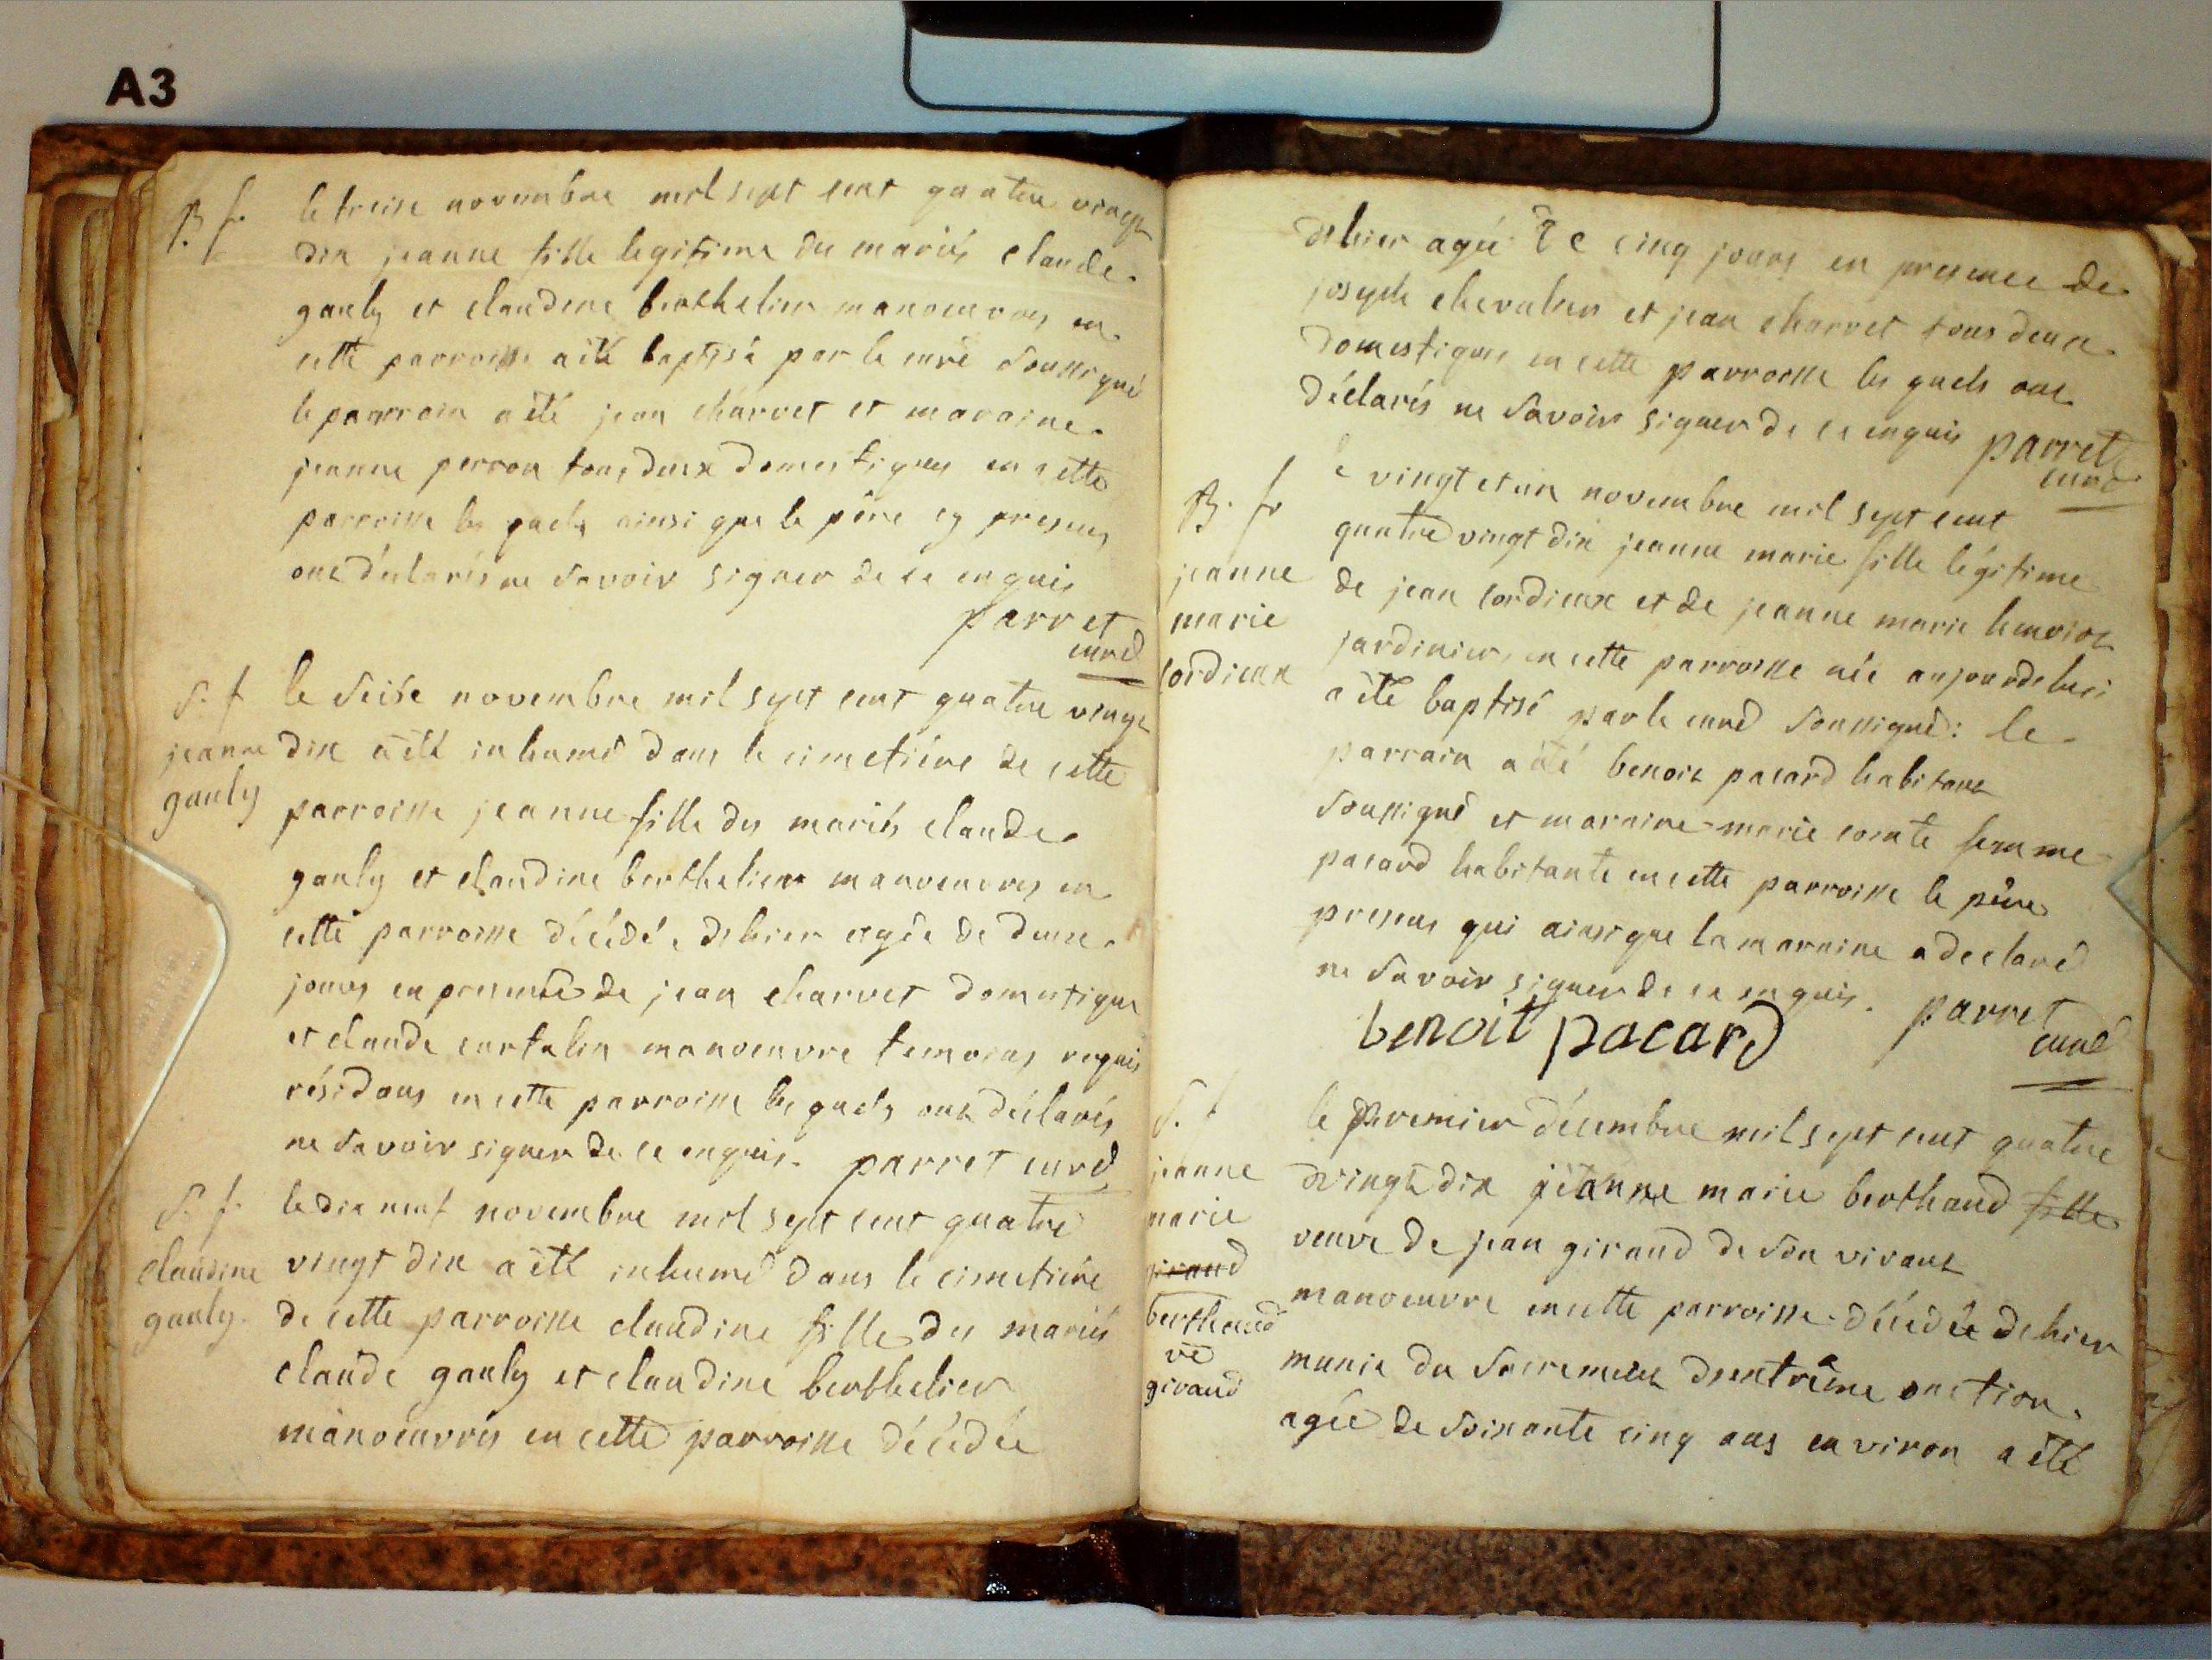 A3
B. f.
le treise novembre mil sept cent quatre vingt
dix jeanne fille legitime des mariés claude
gauly et claudine berthelier manoeuvres en
cette parroisse a été baptisé par le curé soussigné
le parrain a été jean charvet et maraine
jeanne perron tous deux domestiques en cette
parroisse les quels ainsi que le père cy presens
ont déclarés ne savoir signer de ce enquis
parret
curé
S. f
jeanne
gauly
le seise novembre mil sept cent quatre vingt
dix a été inhumé dans le cimetière de cette
parroisse jeanne fille des mariés claude
gauly et claudine berthelier manoeuvres en
cette parroisse décédé e dehier agée de deux
jours en presence de jean charvet domestique
et claude curtelin manoeuvre temoins requis
résidans en cette parroisse les quels ont déclarés
ne savoir signer de ce enquis. parret curé
S. f.
claudine
gauly.
le dix neuf novembre mil sept cent quatre
vingt dix a été inhumé dans le cimetière
de cette parroisse claudine fille des mariés
claude gauly et claudine berthelier
manoeuvres en cette parroisse décédée
dehier agée de cinq jours en presence de
joseph chevalier et jean charvet tous deux
domestiques en cette parroisse les quels ont
déclarés ne savoir signer de ce enquis parret
curé
B. f
jeanne
marie
cordieux
le vingt et un novembre mil sept cent
quatre vingt dix jeanne marie fille légitime
de jean cordieux et de jeanne marie henriot
jardinier, en cette parroisse née aujourdehui
a été baptisé par le curé soussigné: le
parrain a été benoit pacard habitant
soussigné et maraine marie comte femme
pacard habitante en cette parroisse le père
presens qui ainsi que la maraine a declaré
ne savoir signer de ce enquis. parret
curé
benoit pacard
S. f
jeanne
marie
giraud
berthaud
ve
giraud
le premier décembre mil sept cent quatre
vingt dix jeanne marie berthaud fille
veuve de jean giraud de son vivant
manoeuvre en cette parroisse décédée dehier
munie du sacrement dextrême onction
agée de soixante cinq ans environ a été